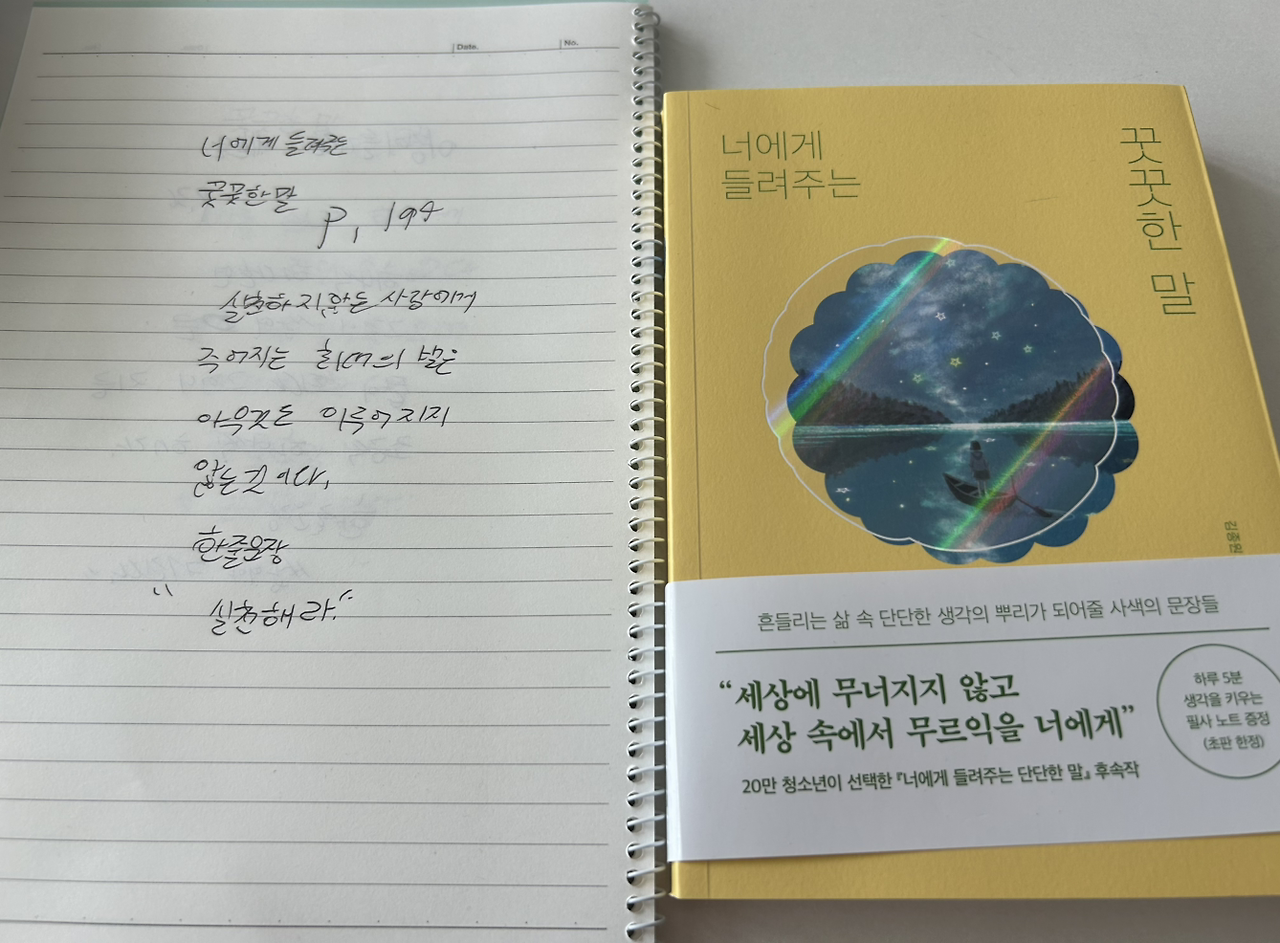 Date.
No.
너에게 들려주는
꿋꿋한 말
P. 194
실천하지 않는 사람에게
주어지는 최대의 벌은
아무것도 이루어지지
않는 것이다.
한줄문장
"실천해라."
너에게
들려주는
꿋꿋한 말
김종원
흔들리는 삶 속 단단한 생각의 뿌리가 되어줄 사색의 문장들
“세상에 무너지지 않고
세상 속에서 무르익을 너에게”
20만 청소년이 선택한 『너에게 들려주는 단단한 말』 후속작
하루 5분
생각을 키우는
필사 노트 증정
(초판 한정)